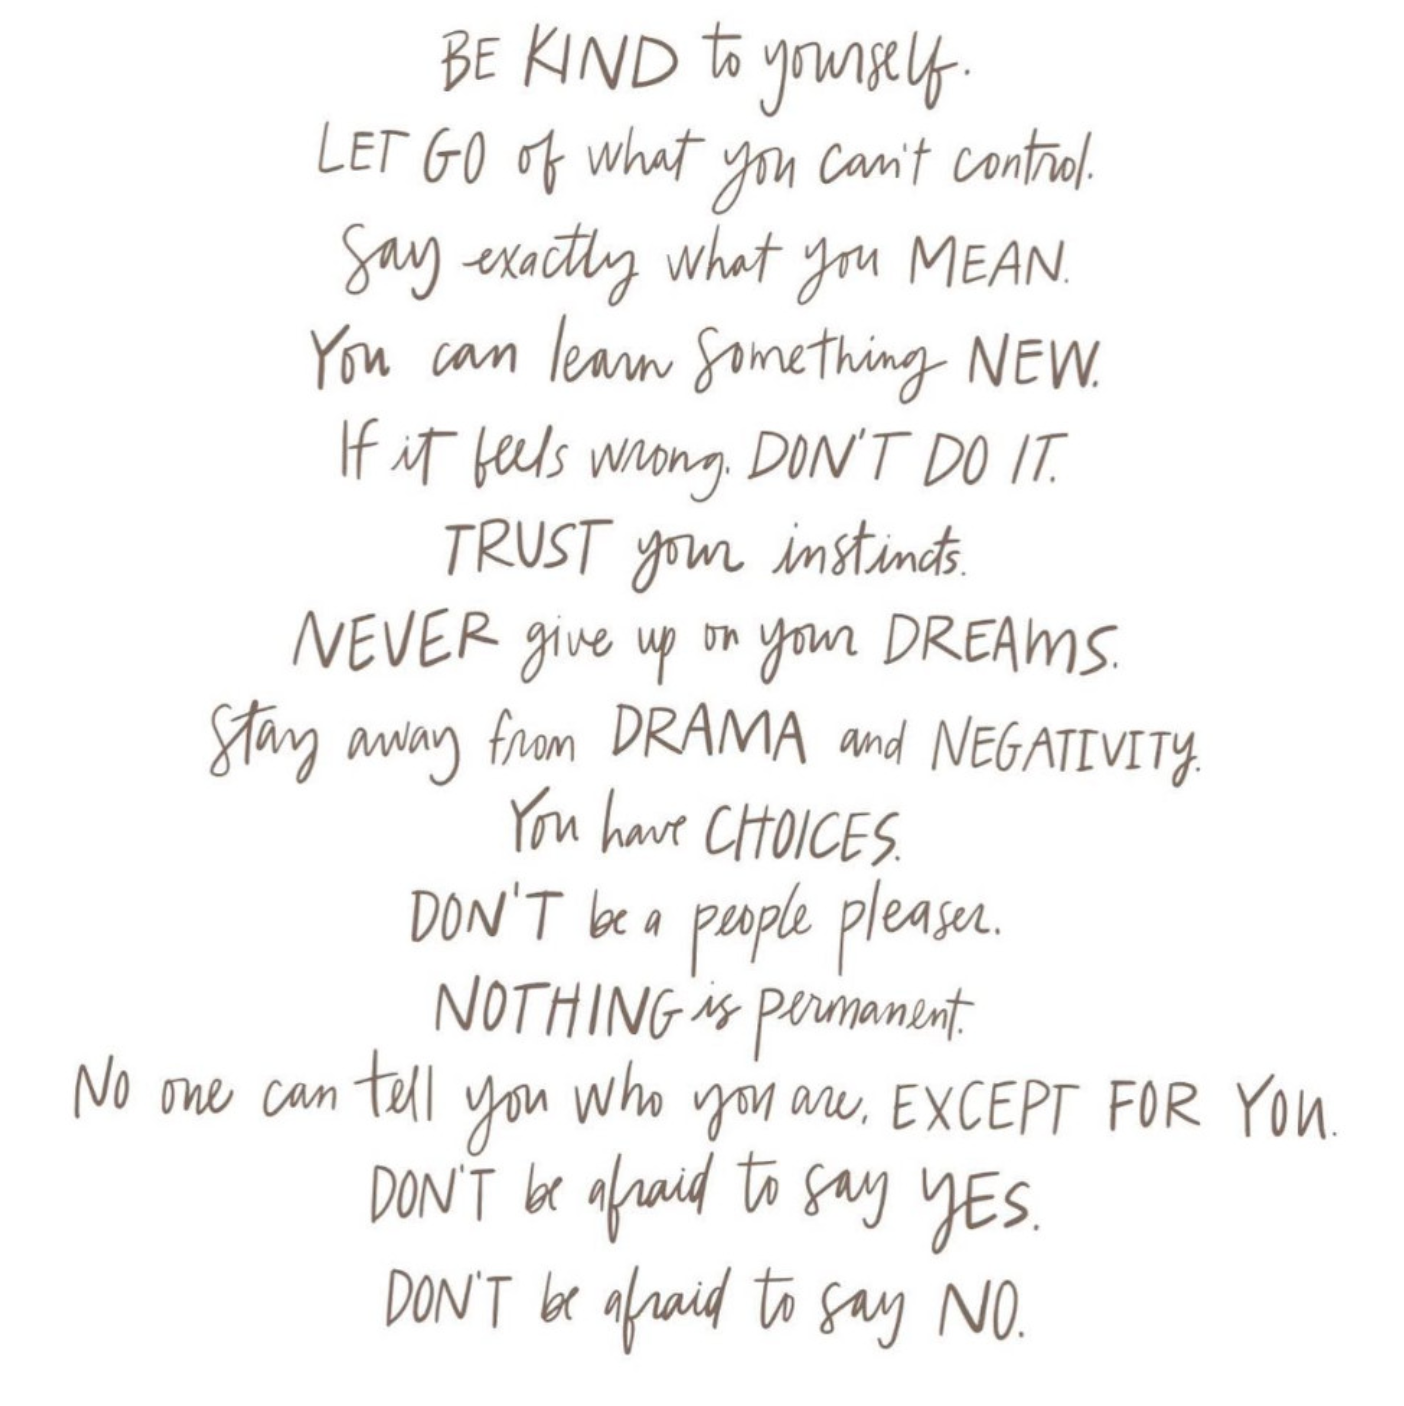 BE KIND to yourself.
LET GO of what you can't control.
Say exactly what you MEAN.
You can learn something NEW.
If it feels wrong. DON'T DO IT.
TRUST your instincts.
NEVER give up on your DREAMS.
Stay away from DRAMA and NEGATIVITY.
You have CHOICES.
DON'T be a people pleaser.
NOTHING is permanent.
No one can tell you who you are, EXCEPT FOR YOU.
DON'T be afraid to say YES.
DON'T be afraid to say NO.